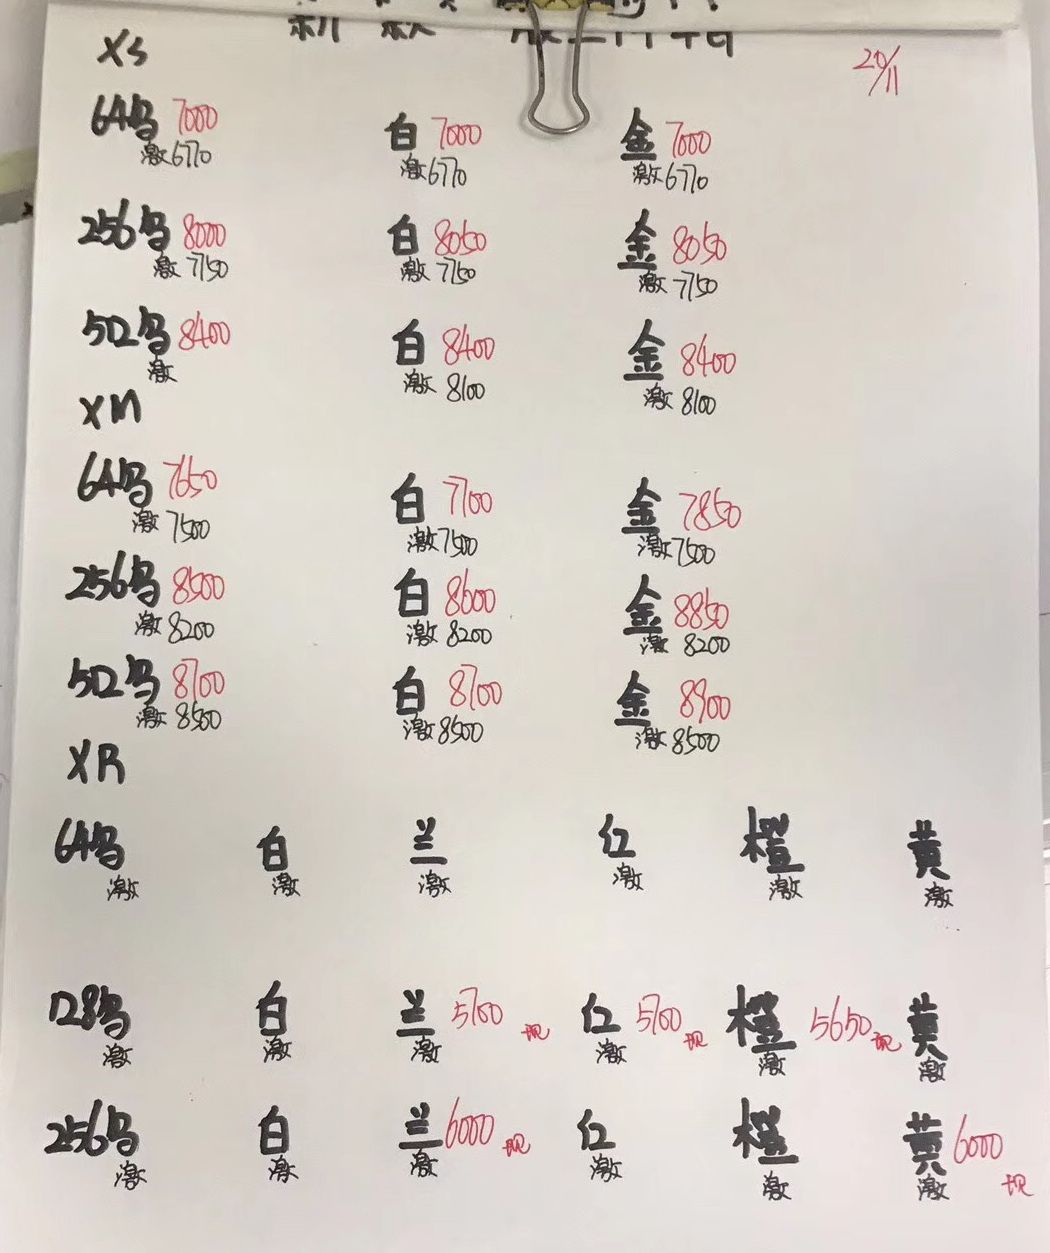 XS 20/11
64乌 7000 白 7000 金 7000
激6770 激6770 激6770
256乌 8000 白 8050 金 8050
激 7750 激 7750 激 7750
512乌 8400 白 8400 金 8400
激 激 8100 激 8100
XM
64乌 7650 白 7700 金 7850
激 7500 激7500 激7500
256乌 8500 白 8600 金 8850
激 8200 激 8200 激 8200
512乌 8700 白 8700 金 8900
激 8500 激 8500 激 8500
XR
64乌 白 兰 红 橙 黄
激 激 激 激 激 激
128乌 白 兰 5700 现 红 5700 现 橙 5650 现 黄
激 激 激 激 激 激
256乌 白 兰 6000 现 红 橙 黄 6000 现
激 激 激 激 激 激